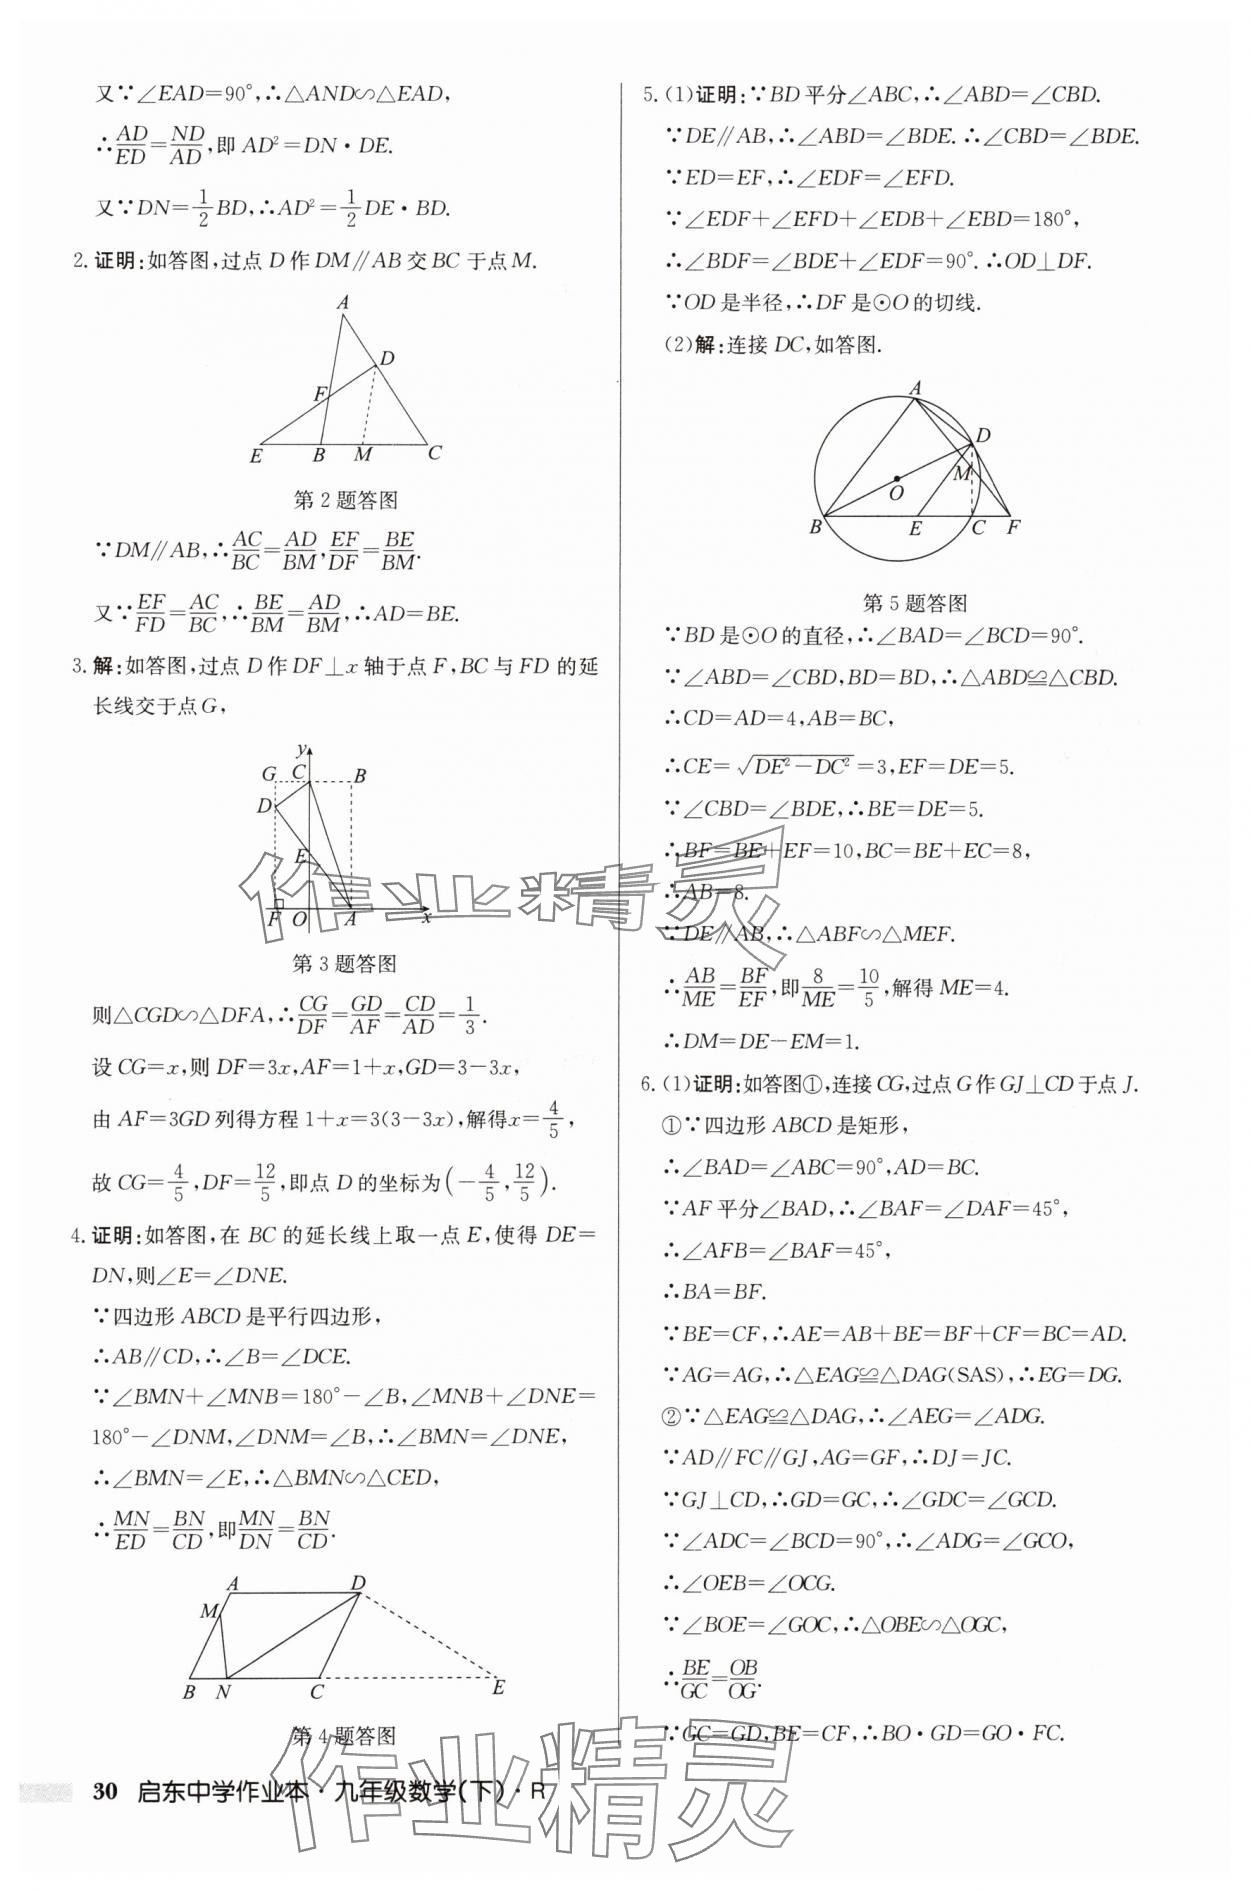 又∵∠EAD=90°,∴△AND∽△EAD,
∴AD/ED=ND/AD,即 AD²=DN·DE.
又∵DN=1/2BD,∴AD²=1/2DE·BD.
2. 证明:如答图,过点 D 作 DM∥AB 交 BC 于点 M.
A
D
F
E B M C
第 2 题答图
∵DM∥AB,∴AC/BC=AD/BM,EF/DF=BE/BM.
又∵EF/FD=AC/BC,∴BE/BM=AD/BM,∴AD=BE.
3. 解:如答图,过点 D 作 DF⊥x 轴于点 F,BC 与 FD 的延
长线交于点 G,
y
G C B
D
E
F O A x
第 3 题答图
则△CGD∽△DFA,∴CG/DF=GD/AF=CD/AD=1/3.
设 CG=x,则 DF=3x,AF=1+x,GD=3-3x,
由 AF=3GD 列得方程 1+x=3(3-3x),解得x=4/5,
故 CG=4/5,DF=12/5,即点 D 的坐标为(-4/5,12/5).
4. 证明:如答图,在 BC 的延长线上取一点 E,使得 DE=
DN,则∠E=∠DNE.
∵四边形 ABCD 是平行四边形,
∴AB∥CD,∴∠B=∠DCE.
∵∠BMN+∠MNB=180°-∠B,∠MNB+∠DNE=
180°-∠DNM,∠DNM=∠B,∴∠BMN=∠DNE,
∴∠BMN=∠E,∴△BMN∽△CED,
∴MN/ED=BN/CD,即MN/DN=BN/CD.
A D
M
B N C E
第 4 题答图
30 启东中学作业本·九年级数学(下)·R
5. (1)证明:∵BD 平分∠ABC,∴∠ABD=∠CBD.
∵DE∥AB,∴∠ABD=∠BDE.∴∠CBD=∠BDE.
∵ED=EF,∴∠EDF=∠EFD.
∵∠EDF+∠EFD+∠EDB+∠EBD=180°,
∴∠BDF=∠BDE+∠EDF=90°.∴OD⊥DF.
∵OD 是半径,∴DF 是⊙O 的切线.
(2)解:连接 DC,如答图.
A
D
M
O
B E C F
第 5 题答图
∵BD 是⊙O 的直径,∴∠BAD=∠BCD=90°.
∵∠ABD=∠CBD,BD=BD,∴△ABD≌△CBD.
∴CD=AD=4,AB=BC,
∴CE=√(DE²-DC²)=3,EF=DE=5.
∵∠CBD=∠BDE,∴BE=DE=5.
∴BF=BE+EF=10,BC=BE+EC=8,
∴AB=8.
∵DE∥AB,∴△ABF∽△MEF.
∴AB/ME=BF/EF,即8/ME=10/5,解得 ME=4.
∴DM=DE-EM=1.
6. (1)证明:如答图①,连接 CG,过点 G 作 GJ⊥CD 于点 J.
①∵四边形 ABCD 是矩形,
∴∠BAD=∠ABC=90°,AD=BC.
∵AF 平分∠BAD,∴∠BAF=∠DAF=45°,
∴∠AFB=∠BAF=45°,
∴BA=BF.
∵BE=CF,∴AE=AB+BE=BF+CF=BC=AD.
∵AG=AG,∴△EAG≌△DAG(SAS),∴EG=DG.
②∵△EAG≌△DAG,∴∠AEG=∠ADG.
∵AD∥FC∥GJ,AG=GF,∴DJ=JC.
∵GJ⊥CD,∴GD=GC,∴∠GDC=∠GCD.
∵∠ADC=∠BCD=90°,∴∠ADG=∠GCO,
∴∠OEB=∠OCG.
∵∠BOE=∠GOC,∴△OBE∽△OGC,
∴BE/GC=OB/OG.
∵GC=GD,BE=CF,∴BO·GD=GO·FC.
作业精灵
作业精灵